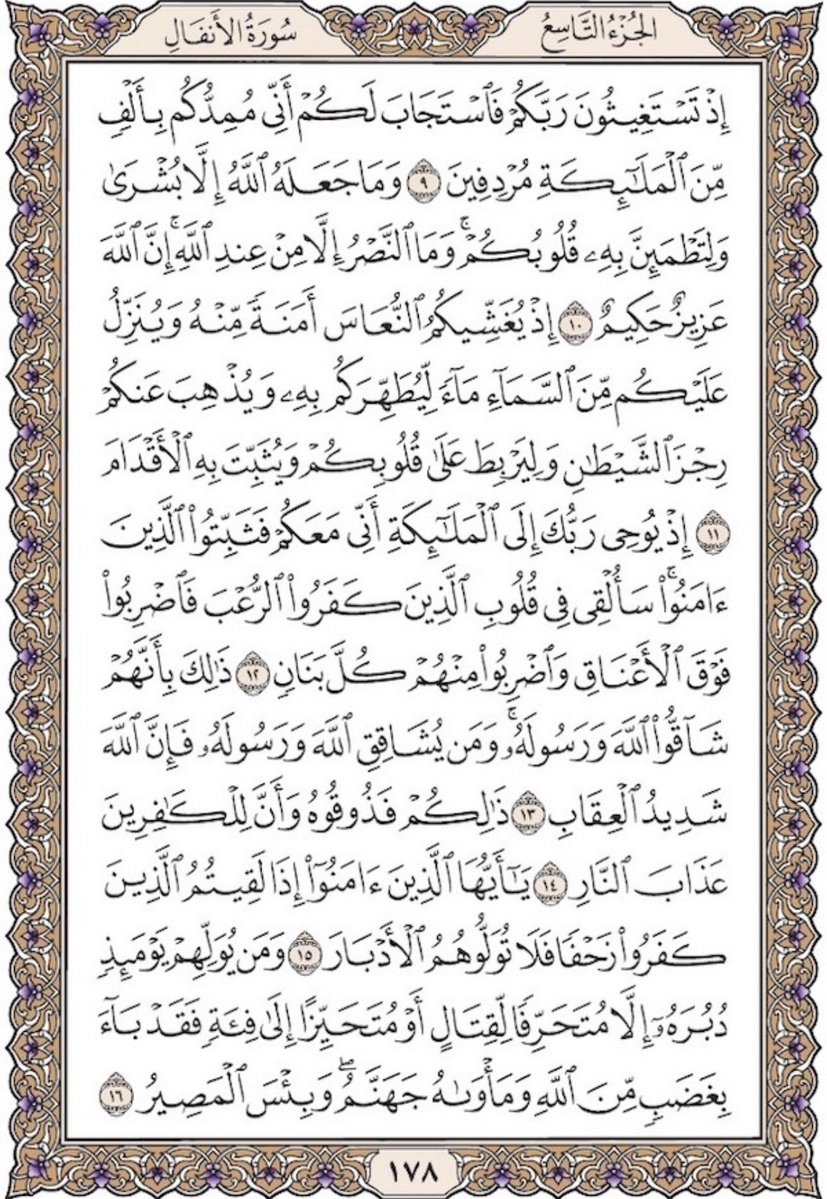 الجُزْءُ التَّاسِعُ
سُورَةُ الأَنفَالِ
إِذْ تَسْتَغِيثُونَ رَبَّكُمْ فَٱسْتَجَابَ لَكُمْ أَنِّى مُمِدُّكُم بِأَلْفٍ
مِّنَ ٱلْمَلَٰٓئِكَةِ مُرْدِفِينَ ٩ وَمَا جَعَلَهُ ٱللَّهُ إِلَّا بُشْرَىٰ
وَلِتَطْمَئِنَّ بِهِۦ قُلُوبُكُمْ ۚ وَمَا ٱلنَّصْرُ إِلَّا مِنْ عِندِ ٱللَّهِ ۚ إِنَّ ٱللَّهَ
عَزِيزٌ حَكِيمٌ ١٠ إِذْ يُغَشِّيكُمُ ٱلنُّعَاسَ أَمَنَةً مِّنْهُ وَيُنَزِّلُ
عَلَيْكُم مِّنَ ٱلسَّمَآءِ مَآءً لِّيُطَهِّرَكُم بِهِۦ وَيُذْهِبَ عَنكُمْ
رِجْزَ ٱلشَّيْطَٰنِ وَلِيَرْبِطَ عَلَىٰ قُلُوبِكُمْ وَيُثَبِّتَ بِهِ ٱلْأَقْدَامَ
١١ إِذْ يُوحِى رَبُّكَ إِلَى ٱلْمَلَٰٓئِكَةِ أَنِّى مَعَكُمْ فَثَبِّتُوا۟ ٱلَّذِينَ
ءَامَنُوا۟ ۚ سَأُلْقِى فِى قُلُوبِ ٱلَّذِينَ كَفَرُوا۟ ٱلرُّعْبَ فَٱضْرِبُوا۟
فَوْقَ ٱلْأَعْنَاقِ وَٱضْرِبُوا۟ مِنْهُمْ كُلَّ بَنَانٍ ١٢ ذَٰلِكَ بِأَنَّهُمْ
شَآقُّوا۟ ٱللَّهَ وَرَسُولَهُۥ ۚ وَمَن يُشَاقِقِ ٱللَّهَ وَرَسُولَهُۥ فَإِنَّ ٱللَّهَ
شَدِيدُ ٱلْعِقَابِ ١٣ ذَٰلِكُمْ فَذُوقُوهُ وَأَنَّ لِلْكَٰفِرِينَ
عَذَابَ ٱلنَّارِ ١٤ يَٰٓأَيُّهَا ٱلَّذِينَ ءَامَنُوٓا۟ إِذَا لَقِيتُمُ ٱلَّذِينَ
كَفَرُوا۟ زَحْفًا فَلَا تُوَلُّوهُمُ ٱلْأَدْبَارَ ١٥ وَمَن يُوَلِّهِمْ يَوْمَئِذٍ
دُبُرَهُۥٓ إِلَّا مُتَحَرِّفًا لِّقِتَالٍ أَوْ مُتَحَيِّزًا إِلَىٰ فِئَةٍ فَقَدْ بَآءَ
بِغَضَبٍ مِّنَ ٱللَّهِ وَمَأْوَىٰهُ جَهَنَّمُ ۖ وَبِئْسَ ٱلْمَصِيرُ ١٦
١٧٨